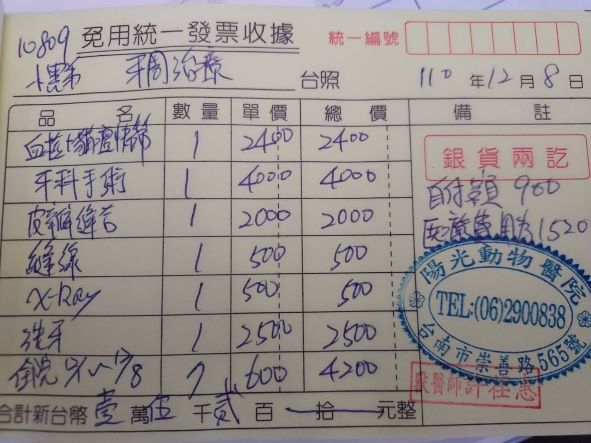 10809 免用統一發票收據 統一編號
小黑弟 牙周治療 台照 110年12月8日
品名 數量 單價 總價 備註
1 2400 2400
牙科手術 1 4000 4000
皮瓣縫合 1 2000 2000
縫線 1 500 500
X-Ray 1 500 500
洗牙 1 2500 2500
7 600 4200
合計新台幣 壹萬伍千貳百一拾元整
銀貨兩訖
自付額 900
醫療費用為1520
陽光動物醫院
TEL:(06)2900838
台南市崇善路565號
獸醫師